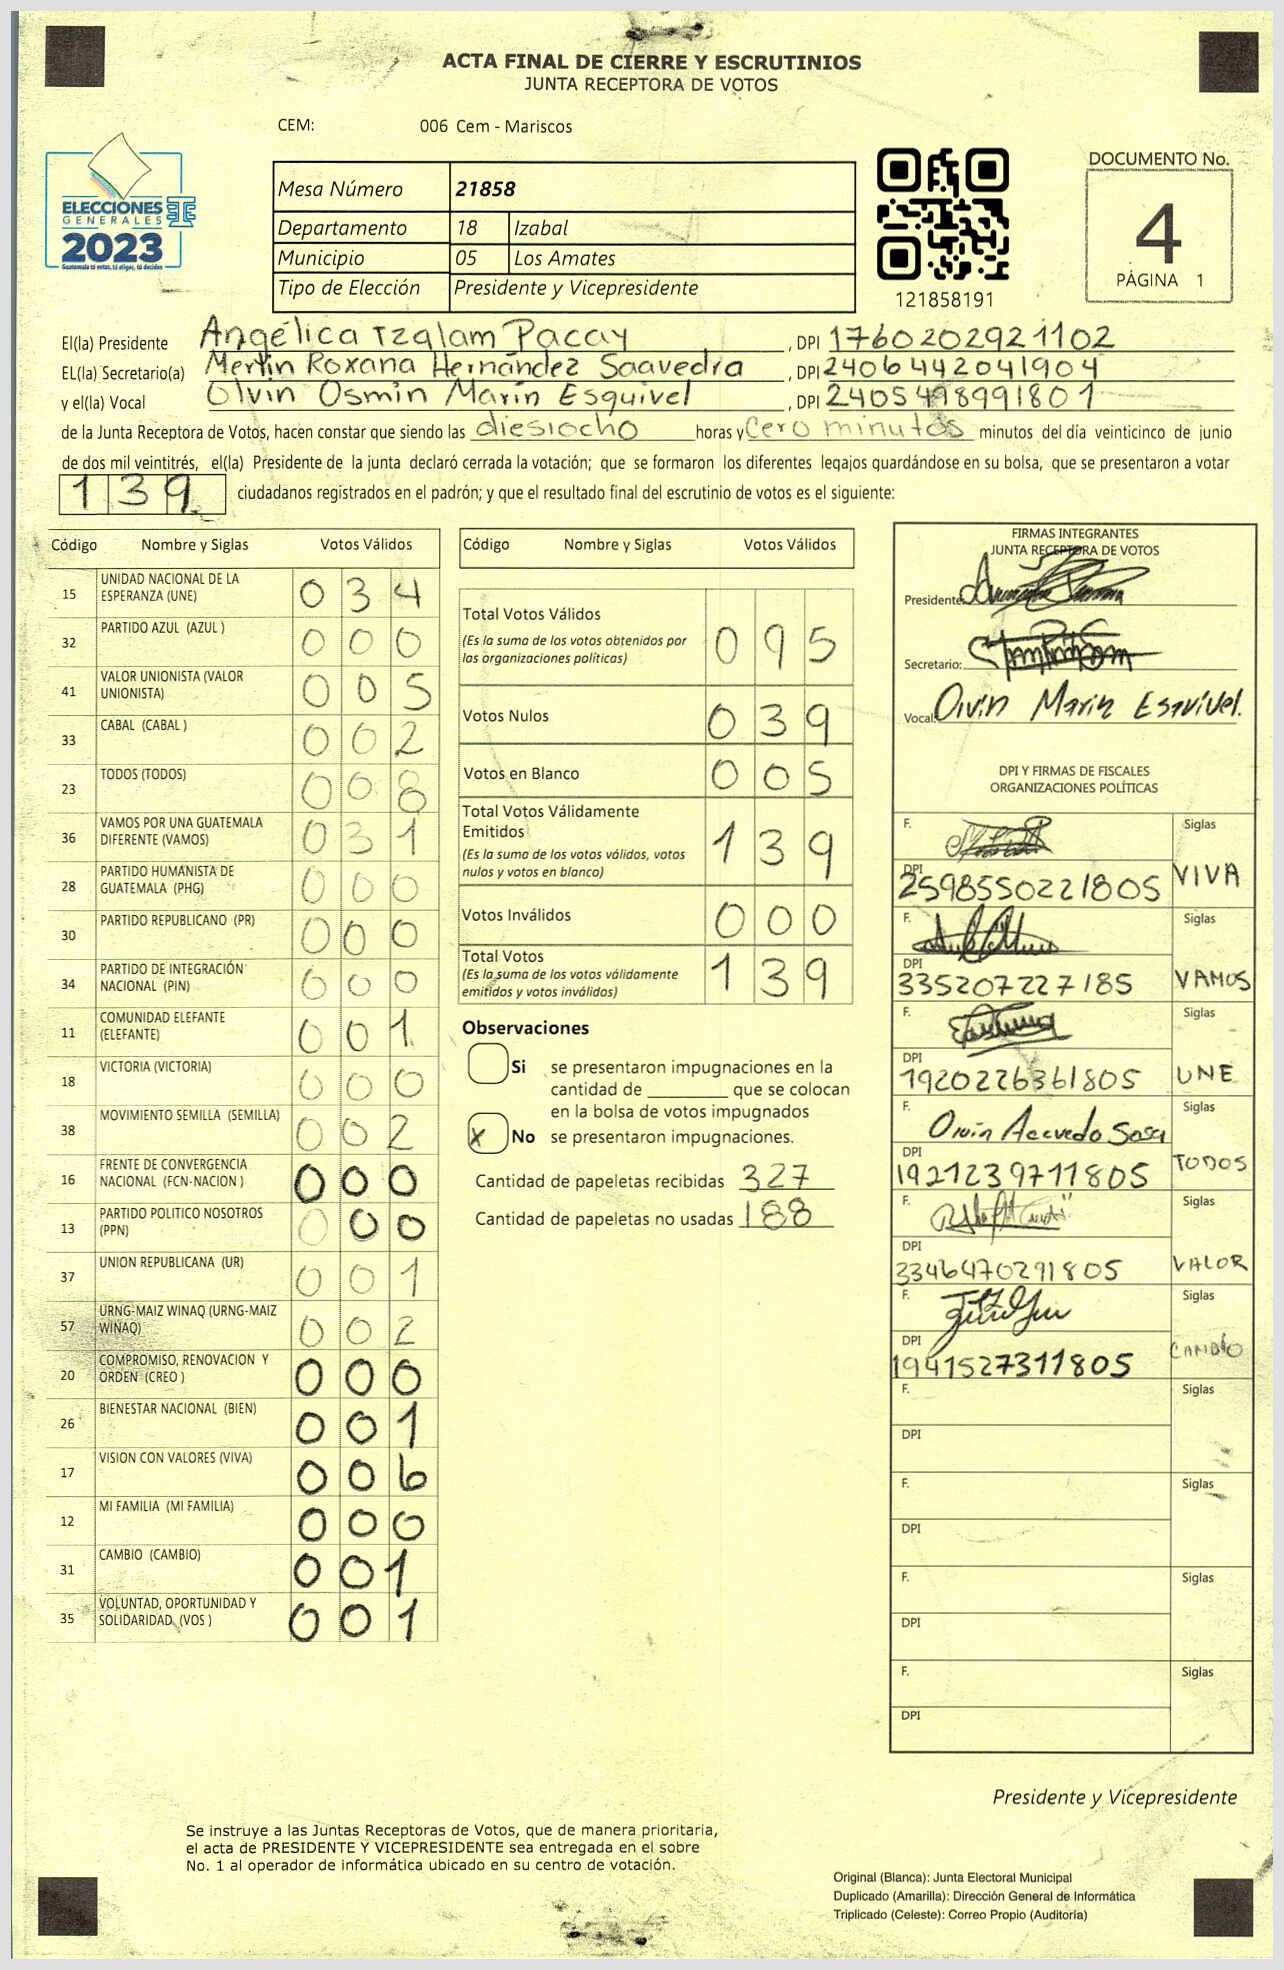 ACTA FINAL DE CIERRE Y ESCRUTINIOS
JUNTA RECEPTORA DE VOTOS
CEM: 006 Cem - Mariscos
ELECCIONES
GENERALES
2023
Guatemala tú votas, tú eliges, tú decides
Mesa Número 21858
Departamento 18 Izabal
Municipio 05 Los Amates
Tipo de Elección Presidente y Vicepresidente
121858191
DOCUMENTO No.
4
PÁGINA 1
El(la) Presidente Angélica Tzalam Pacay , DPI 1760202921102
EL(la) Secretario(a) Merlin Roxana Hernández Saavedra , DPI 2406442041904
y el(la) Vocal Olvin Osmin Marín Esquivel , DPI 2405498991801
de la Junta Receptora de Votos, hacen constar que siendo las diesiocho horas y Cero minutos minutos del día veinticinco de junio
de dos mil veintitrés, el(la) Presidente de la junta declaró cerrada la votación; que se formaron los diferentes legajos guardándose en su bolsa, que se presentaron a votar
139 ciudadanos registrados en el padrón; y que el resultado final del escrutinio de votos es el siguiente:
Código Nombre y Siglas Votos Válidos
15 UNIDAD NACIONAL DE LA ESPERANZA (UNE) 034
32 PARTIDO AZUL (AZUL ) 000
41 VALOR UNIONISTA (VALOR UNIONISTA) 005
33 CABAL (CABAL ) 002
23 TODOS (TODOS) 008
36 VAMOS POR UNA GUATEMALA DIFERENTE (VAMOS) 031
28 PARTIDO HUMANISTA DE GUATEMALA (PHG) 000
30 PARTIDO REPUBLICANO (PR) 000
34 PARTIDO DE INTEGRACIÓN NACIONAL (PIN) 000
11 COMUNIDAD ELEFANTE (ELEFANTE) 001
18 VICTORIA (VICTORIA) 000
38 MOVIMIENTO SEMILLA (SEMILLA) 002
16 FRENTE DE CONVERGENCIA NACIONAL (FCN-NACION ) 000
13 PARTIDO POLITICO NOSOTROS (PPN) 000
37 UNION REPUBLICANA (UR) 001
57 URNG-MAIZ WINAQ (URNG-MAIZ WINAQ) 002
20 COMPROMISO, RENOVACION Y ORDEN (CREO ) 000
26 BIENESTAR NACIONAL (BIEN) 001
17 VISION CON VALORES (VIVA) 006
12 MI FAMILIA (MI FAMILIA) 000
31 CAMBIO (CAMBIO) 001
35 VOLUNTAD, OPORTUNIDAD Y SOLIDARIDAD (VOS ) 001
Código Nombre y Siglas Votos Válidos
Total Votos Válidos 095
(Es la suma de los votos obtenidos por
las organizaciones políticas)
Votos Nulos 039
Votos en Blanco 005
Total Votos Válidamente
Emitidos 139
(Es la suma de los votos válidos, votos
nulos y votos en blanco)
Votos Inválidos 000
Total Votos 139
(Es la suma de los votos válidamente
emitidos y votos inválidos)
Observaciones
Si se presentaron impugnaciones en la
cantidad de ________ que se colocan
en la bolsa de votos impugnados
X No se presentaron impugnaciones.
Cantidad de papeletas recibidas 327
Cantidad de papeletas no usadas 188
FIRMAS INTEGRANTES
JUNTA RECEPTORA DE VOTOS
Presidente:
Secretario:
Vocal: Olvin Marin Esquivel.
DPI Y FIRMAS DE FISCALES
ORGANIZACIONES POLÍTICAS
F. Siglas
DPI 2598550221805 VIVA
F. Siglas
DPI 335207227185 VAMOS
F. Siglas
DPI 1920226361805 UNE
F. Olvin Acevedo Sosa Siglas
DPI 1921239711805 TODOS
F. Siglas
DPI 3346470291805 VALOR
F. Siglas
DPI 1941527311805 CAMBIO
F. Siglas
DPI
F. Siglas
DPI
F. Siglas
DPI
F. Siglas
DPI
Presidente y Vicepresidente
Se instruye a las Juntas Receptoras de Votos, que de manera prioritaria,
el acta de PRESIDENTE Y VICEPRESIDENTE sea entregada en el sobre
No. 1 al operador de informática ubicado en su centro de votación.
Original (Blanca): Junta Electoral Municipal
Duplicado (Amarilla): Dirección General de Informática
Triplicado (Celeste): Correo Propio (Auditoría)